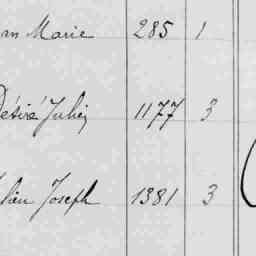 Marie 285 1
Désiré Julien 1177 3
Joseph 1381 3